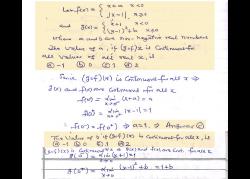 Let f(x) = { x+a x<0
|x-1| x≥0
and g(x) = { x+1 x<0
(x-1)²+b x≥0
where a and b are non-negative real numbers
The value of a, if (gof)(x) is continuous for
all values of all real x, is
a) -1 b) 0 c) 1 d) 2
Since (gof)(x) is continuous for all x ⇒
g(x) and f(x) are continuous for all x
f(0⁻) = lim x→0 (x+a) = a
f(0⁺) = lim x→0 |x-1| = 1
f(0⁻) = f(0⁺) ⇒ a=1. ⇒ Answer (c)
The value of b if (gof)(x) is continuous for all x, is
a) -1 b) 0 c) 1 d) 2
(gof)(x) is continuous ∀ x ⇒ g(x) and f(x) are cont. for all x
g(0⁻) = lim x→0 (x+1) = 1
g(0⁺) = lim x→0 (x-1)²+b = 1+b